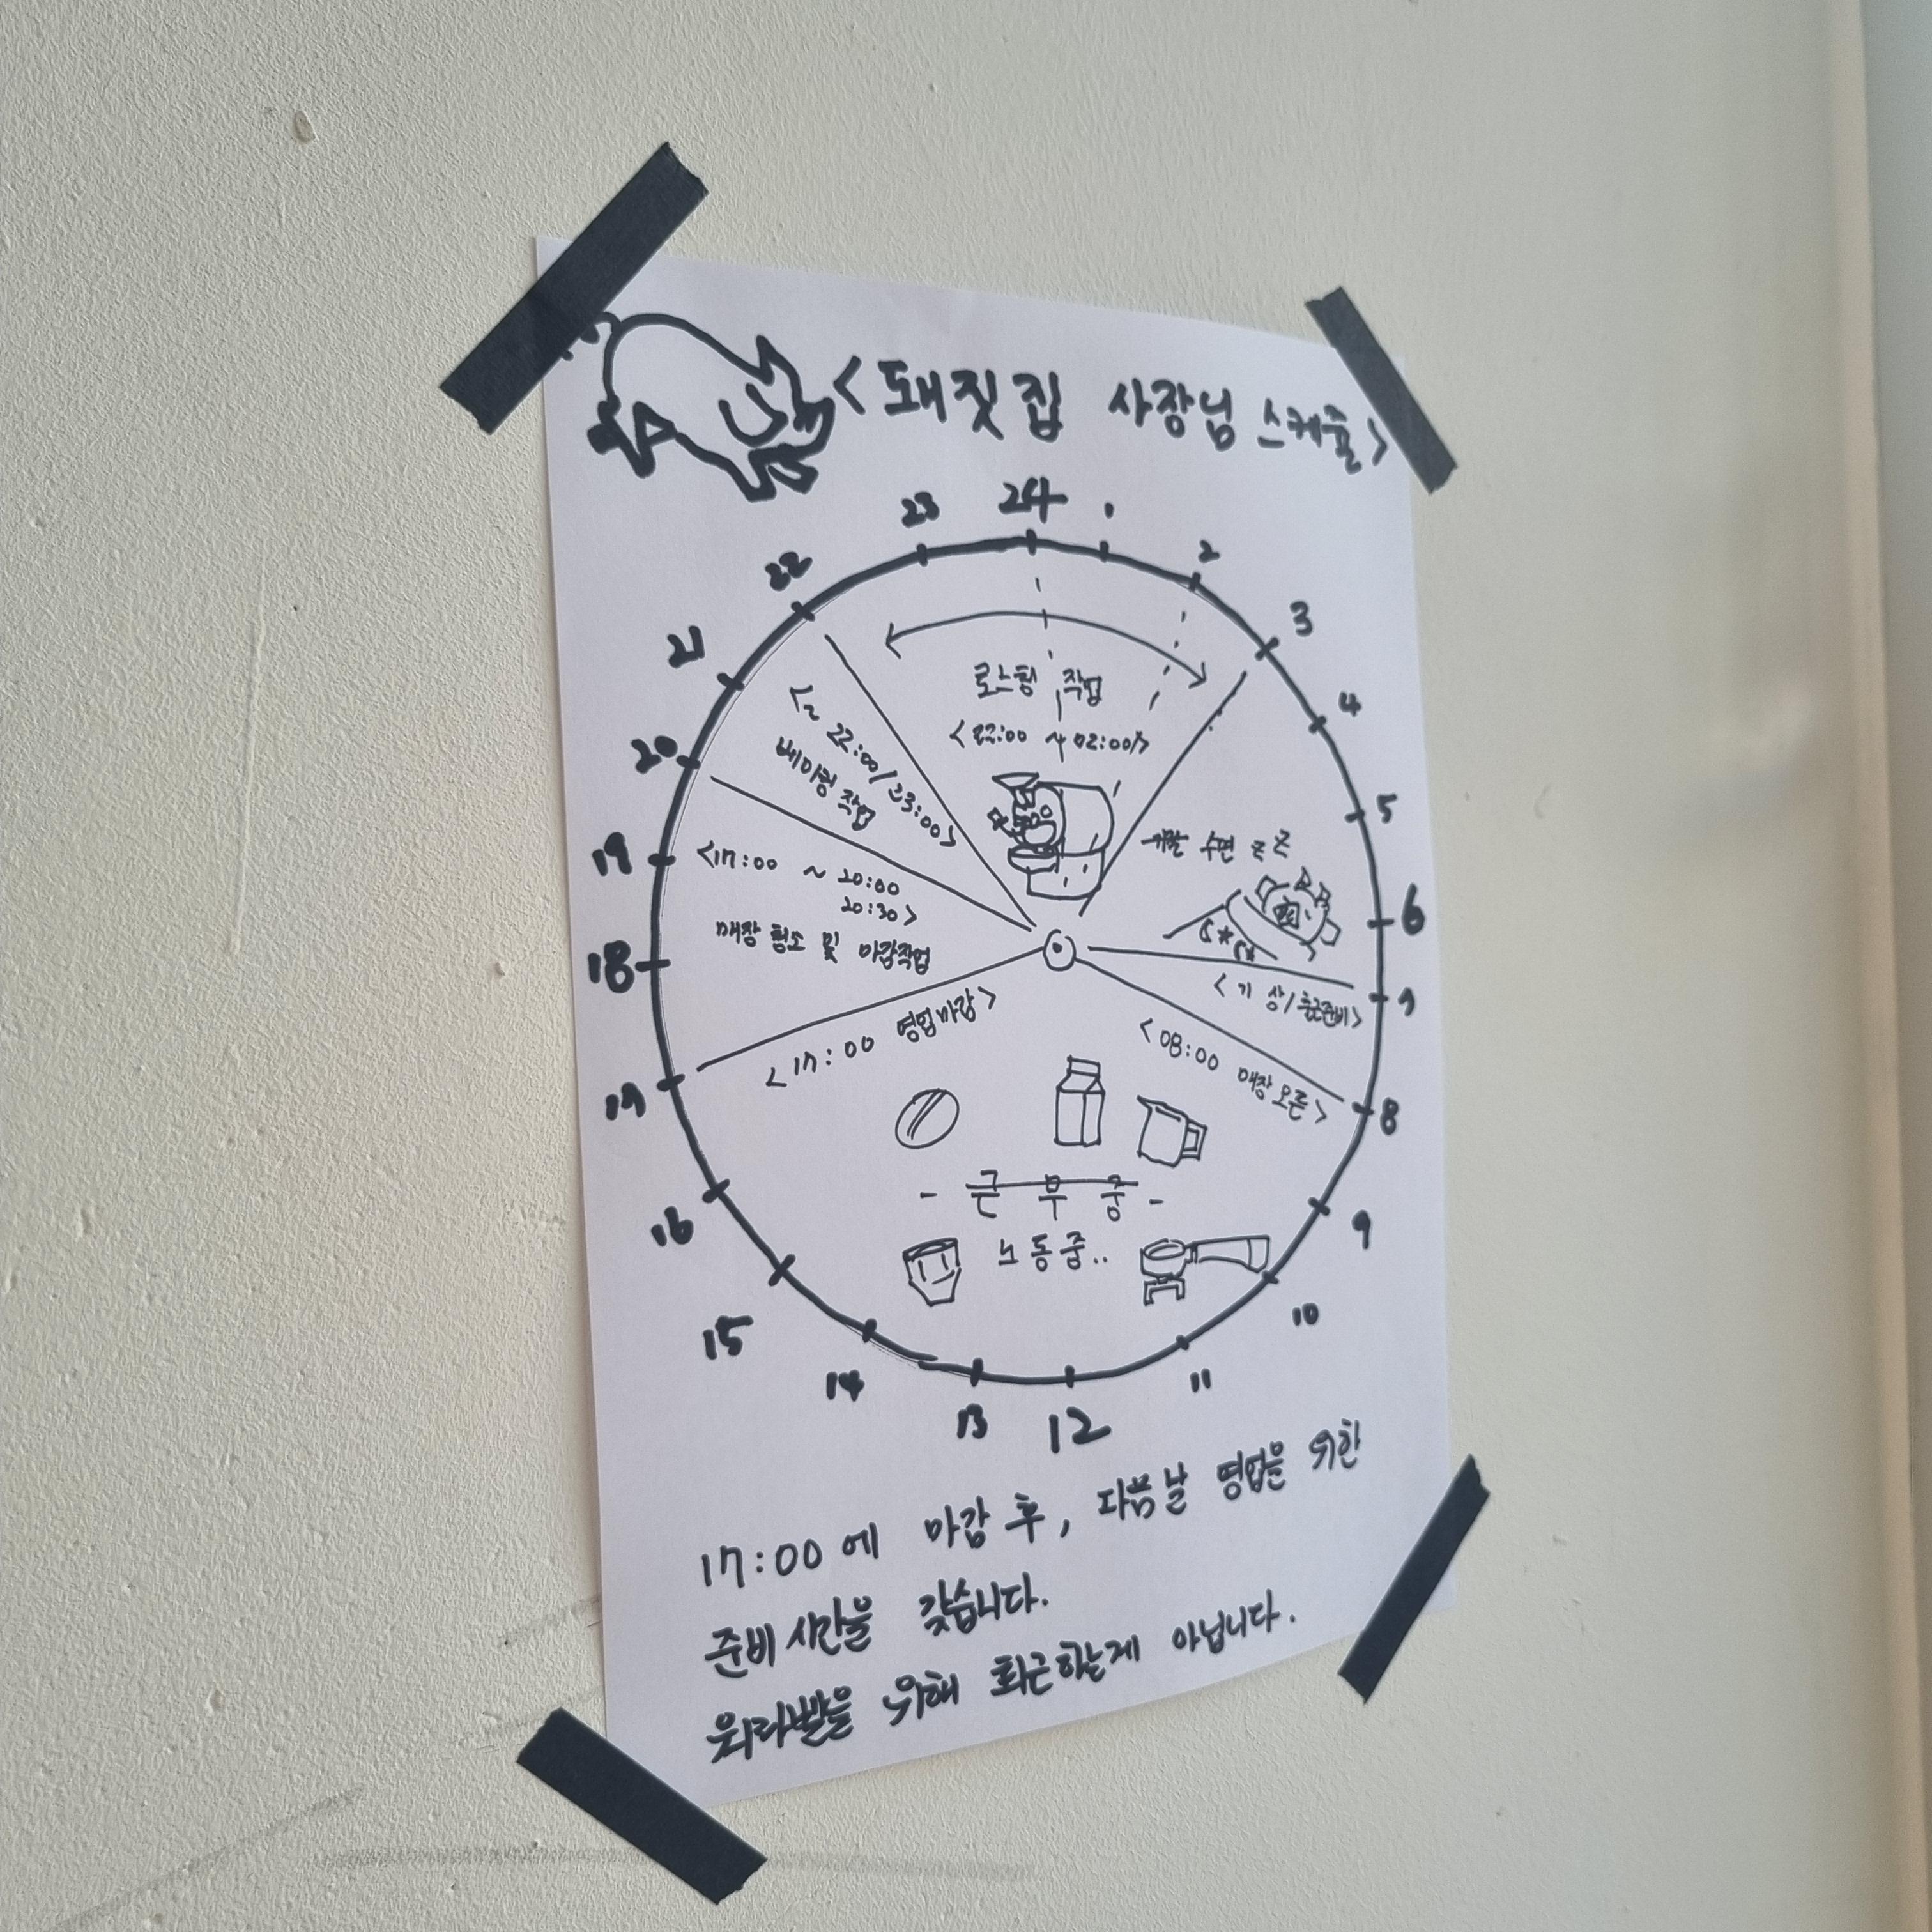 <돼짓집 사장님 스케줄>
24
1
2
3
4
5
6
7
8
9
10
11
12
13
14
15
16
17
18
19
20
21
22
23
로스팅 작업
<22:00 ~ 02:00>
수면 zz
<기상/출근준비>
<08:00 매장오픈>
- 근무중 -
노동중..
<17:00 영업마감>
<17:00 ~ 20:00
20:30>
매장 청소 및 마감작업
<~ 22:00/23:00>
베이킹 작업
17:00에 마감 후, 다음날 영업을 위한
준비시간을 갖습니다.
워라밸을 위해 퇴근하는게 아닙니다.